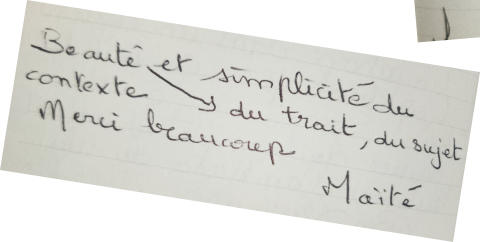 Beauté et simplicité du
contexte du trait, du sujet
Merci beaucoup
Maïté